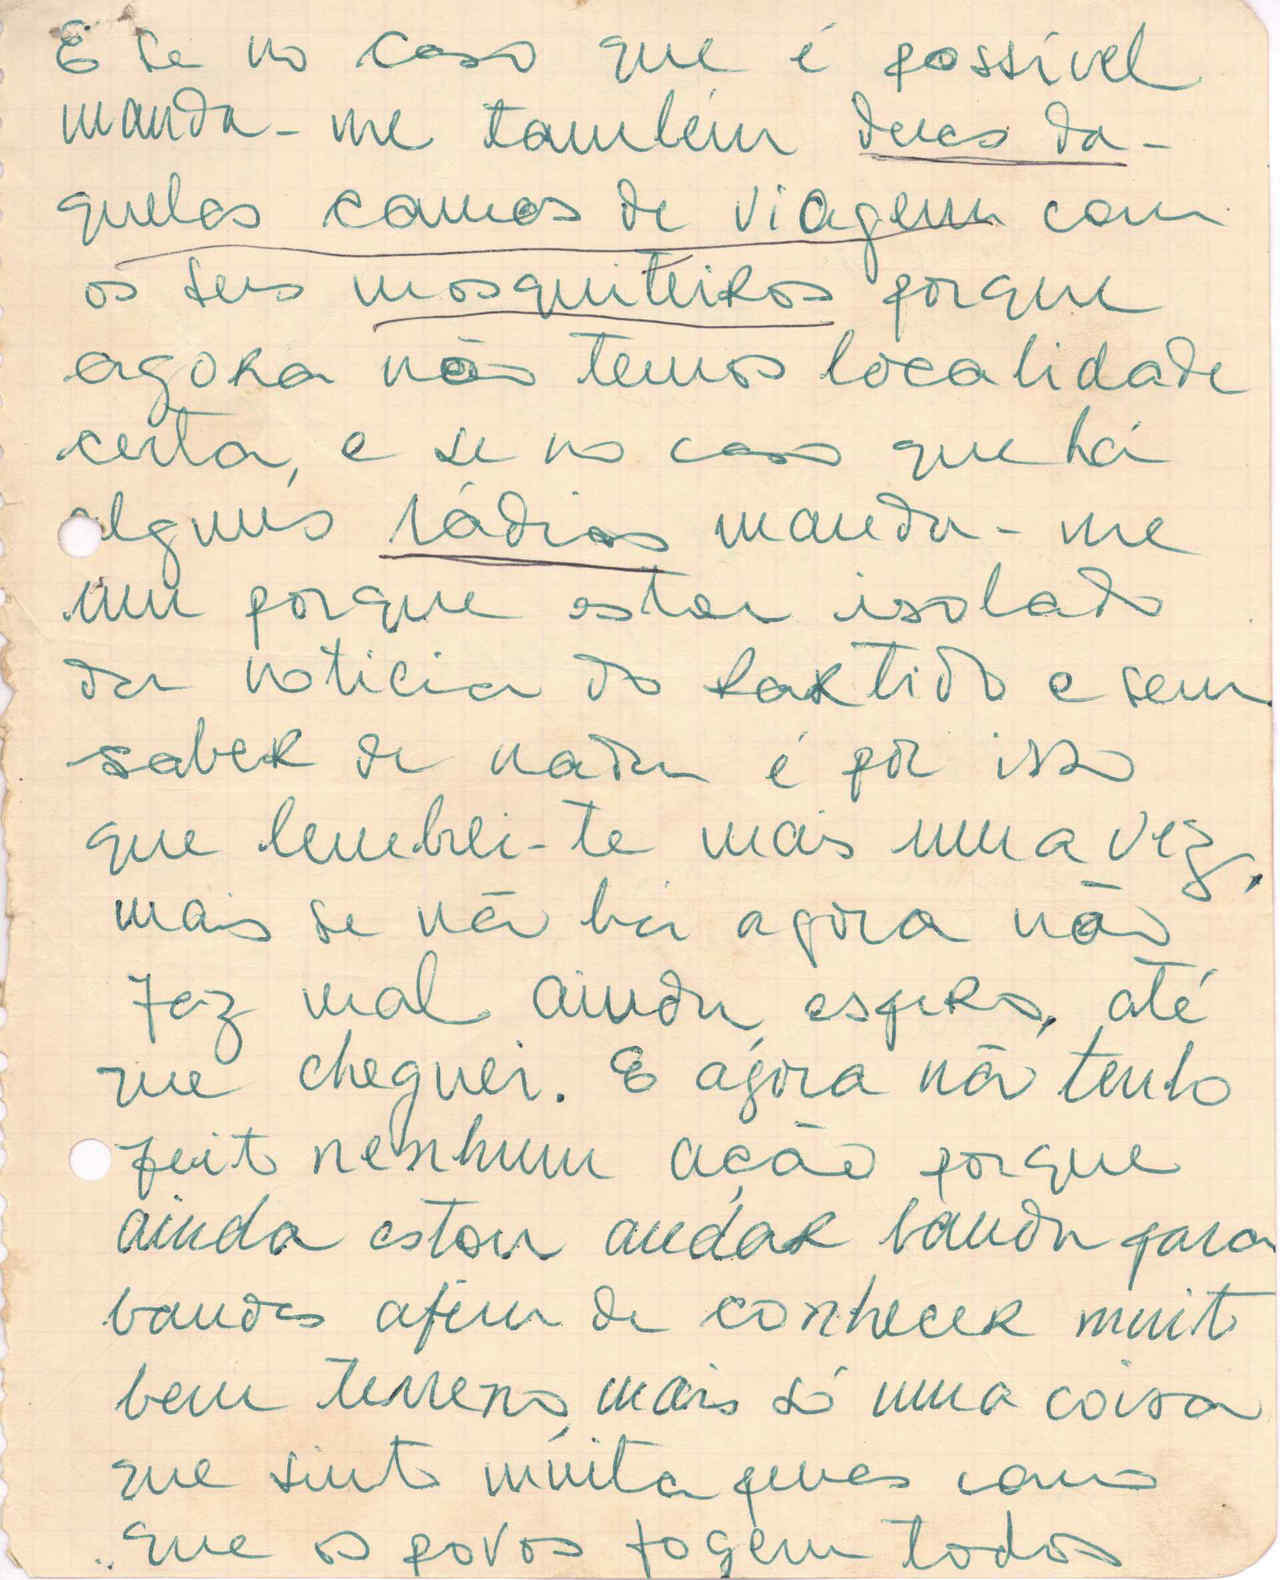 E se no caso que é possível
manda-me também duas da-
quelas camas de viagem com
os seus mosquiteiros porque
agora não temos localidade
certa, e se no caso que há
alguns rádios manda-me
um porque estou isolado
da noticia do Partido e sem
saber de nada é por isso
que lembrei-te mais uma vez,
mais se não há agora não
faz mal ainda espero, até
que cheguei. E agora não tenho
feito nenhum acção porque
ainda estou andar banda para
bandas afim de conhecer muito
bem terreno, mais só uma coisa
que sinto muita penas como
que os povos fogem todos